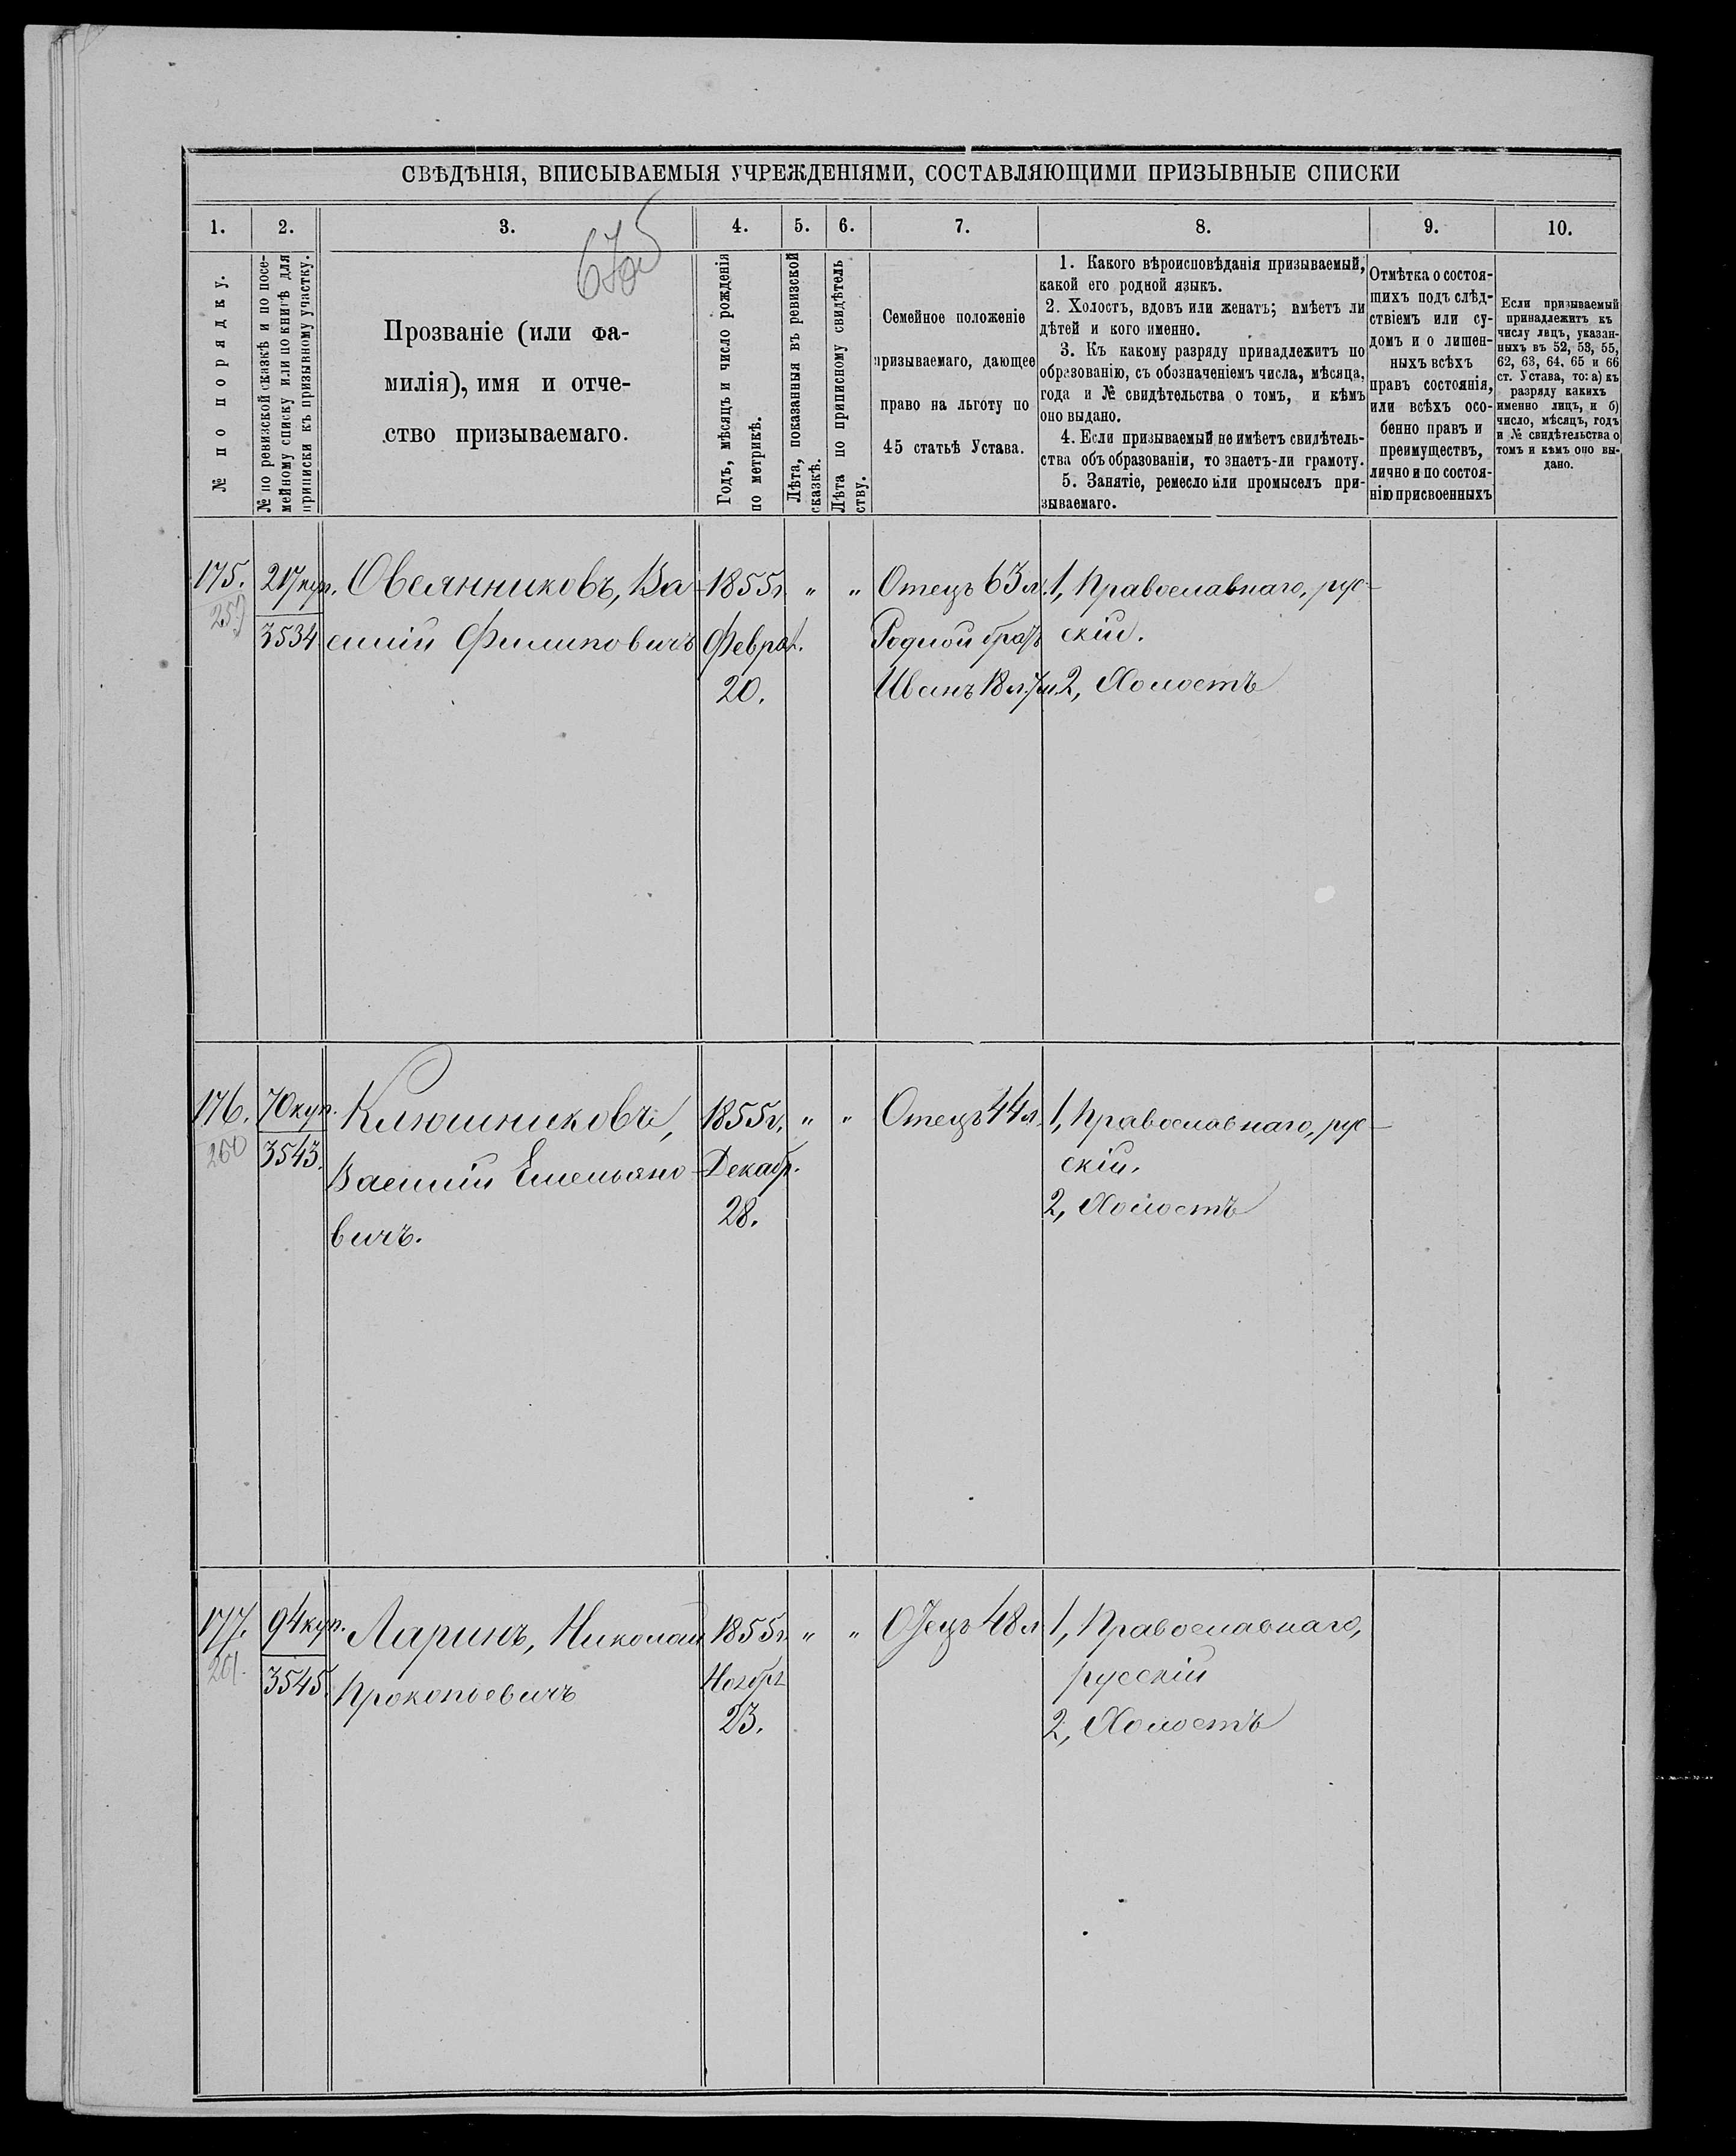 СВѢДѢНІЯ, ВПИСЫВАЕМЫЯ УЧРЕЖДЕНІЯМИ, СОСТАВЛЯЮЩИМИ ПРИЗЫВНЫЕ СПИСКИ
1. 2. 3. 4. 5. 6. 7. 8. 9. 10.
№ по порядку.
№ по ревизской сказкѣ и по посе-
мейному списку или по книгѣ для
приписки къ призывному участку.
Прозваніе (или фа-
милія), имя и отче-
ство призываемаго.
Годъ, мѣсяцъ и число рожденія
по метрикѣ.
Лѣта, показанныя въ ревизской
сказкѣ.
Лѣта по приписному свидѣтель
ству.
Семейное положеніе
призываемаго, дающее
право на льготу по
45 статьѣ Устава.
1. Какого вѣроисповѣданія призываемый,
какой его родной языкъ.
2. Холостъ, вдовъ или женатъ; имѣетъ ли
дѣтей и кого именно.
3. Къ какому разряду принадлежитъ по
образованію, съ обозначеніемъ числа, мѣсяца,
года и № свидѣтельства о томъ, и кѣмъ
оно выдано.
4. Если призываемый не имѣетъ свидѣтель-
ства объ образованіи, то знаетъ-ли грамоту.
5. Занятіе, ремесло или промыселъ при-
зываемаго.
Отмѣтка о состоя-
щихъ подъ слѣд-
ствіемъ или су-
домъ и о лишен-
ныхъ всѣхъ
правъ состоянія,
или всѣхъ осо-
бенно правъ и
преимуществъ,
лично и по состоя-
нію присвоенныхъ
Если призываемый
принадлежитъ къ
числу лицъ, указан-
ныхъ въ 52, 53, 55,
62, 63, 64, 65 и 66
ст. Устава, то: а) къ
разряду какихъ
именно лицъ, и б)
число, мѣсяцъ, годъ
и № свидѣтельства о
томъ и кѣмъ оно вы-
дано.
175.
217 куп.
3534
Овсянниковъ, Ва
силій Филиповичъ
1855 г.
Феврал.
20.
" "
Отецъ 63 л.
Родной братъ
Иванъ 18 л. 7 м.
1, Православнаго, рус-
скій.
2, Холостъ
176.
260
70 куп.
3543.
Клюшниковъ,
Василій Емельяно-
вичъ.
1855 г.
Декабр.
28.
" "
Отецъ 44 л.
1, Православнаго, рус-
скій.
2, Холостъ
177.
261.
94 куп.
3545.
Ларинъ, Николай
Прокопьевичъ
1855 г.
Ноябр
23.
" "
Отецъ 48 л
1, Православнаго,
русскій
2, Холостъ